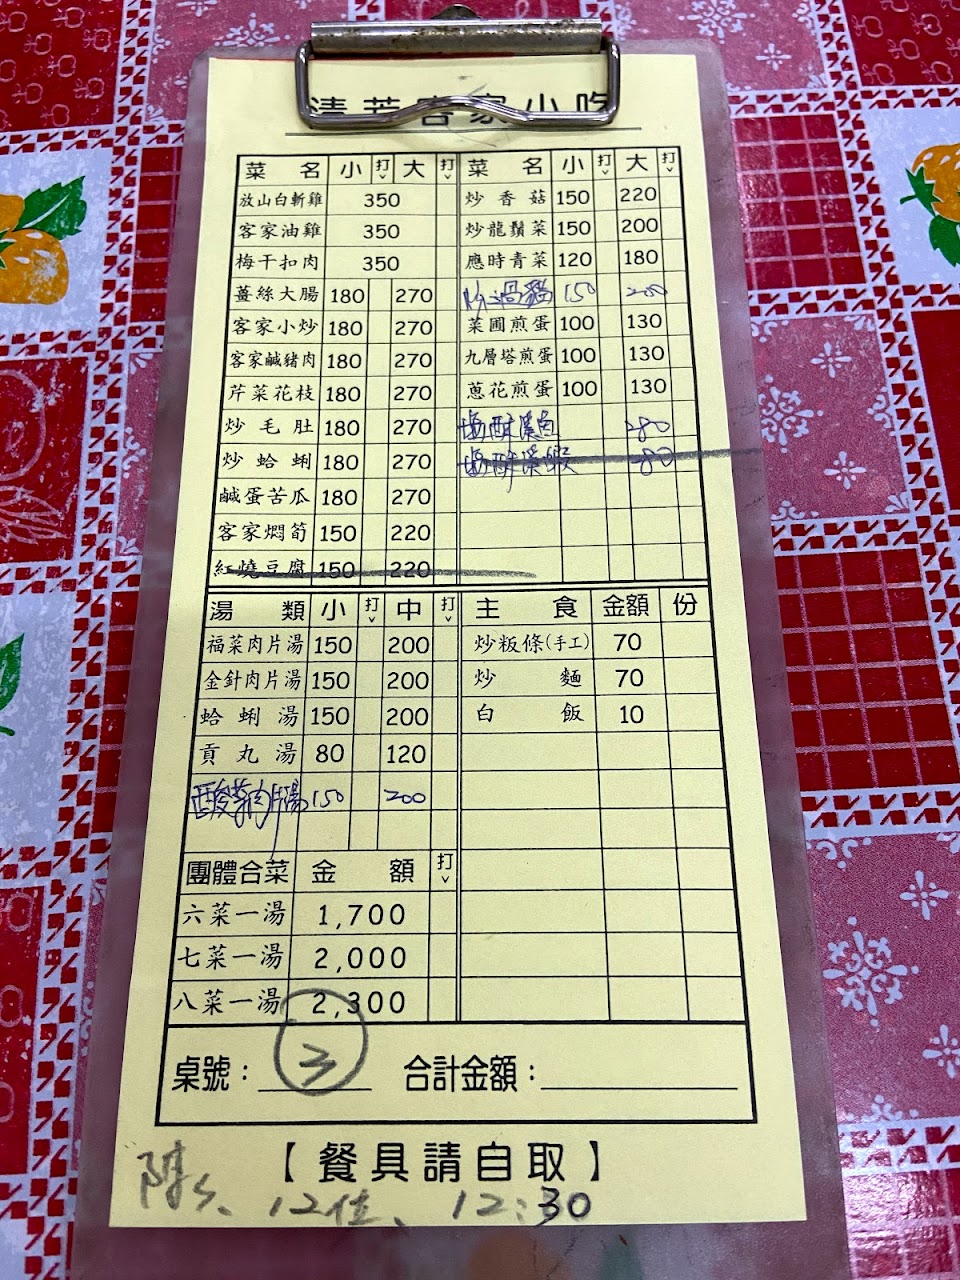 清芳客家小吃
菜名 小 打ˇ 大 打ˇ
放山白斬雞 350
客家油雞 350
梅干扣肉 350
薑絲大腸 180 270
客家小炒 180 270
客家鹹豬肉 180 270
芹菜花枝 180 270
炒毛肚 180 270
炒蛤蜊 180 270
鹹蛋苦瓜 180 270
客家燜筍 150 220
紅燒豆腐 150 220
菜名 小 打ˇ 大 打ˇ
炒香菇 150 220
炒龍鬚菜 150 200
應時青菜 120 180
炒過貓 150 200
菜圃煎蛋 100 130
九層塔煎蛋 100 130
蔥花煎蛋 100 130
塩酥溪魚 280
塩酥溪蝦 280
湯類 小 打ˇ 中 打ˇ
福菜肉片湯 150 200
金針肉片湯 150 200
蛤蜊湯 150 200
貢丸湯 80 120
酸菜肉片湯 150 200
主食 金額 份
炒粄條(手工) 70
炒麵 70
白飯 10
團體合菜 金額 打ˇ
六菜一湯 1,700
七菜一湯 2,000
八菜一湯 2,300
桌號: 3 合計金額:
【餐具請自取】
陳s、12位、12:30